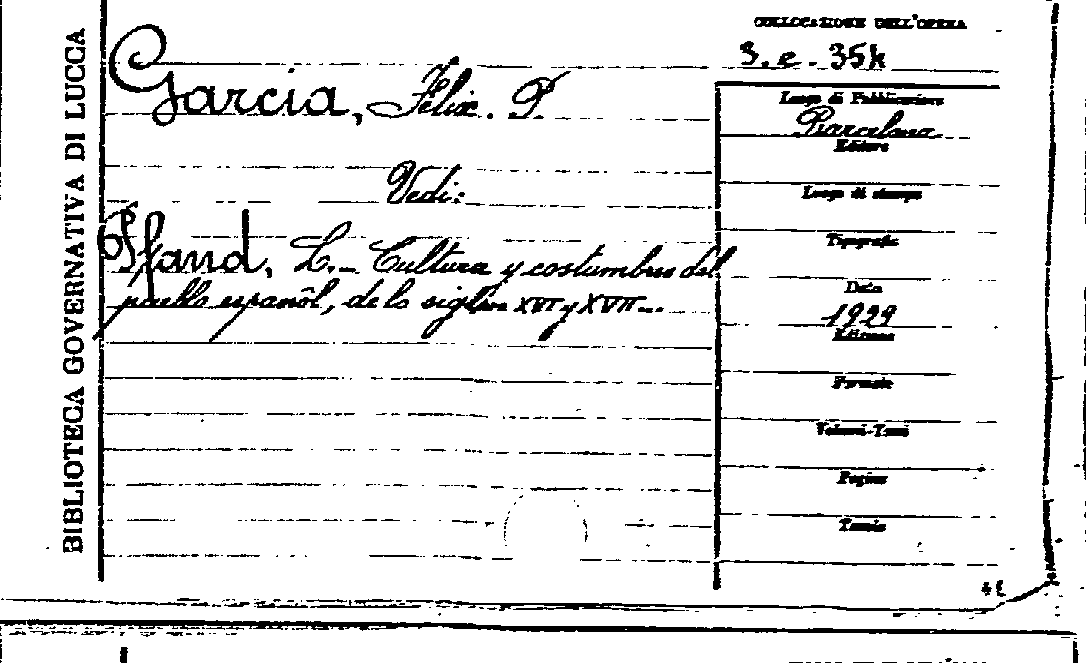 BIBLIOTECA GOVERNATIVA DI LUCCA
COLLOCAZIONE DELL'OPERA
3. e. 354
Garcia, Félix. P.
Vedi:
Pfand, L. - Cultura y costumbres del
pueblo españōl, de lo siglos XVI y XVII -
Luogo di Pubblicazione
Barcelona
Editore
Luogo di stampa
Tipografia
Data
1929
Edizione
Formato
Volumi-Tomi
Pagine
Tavole